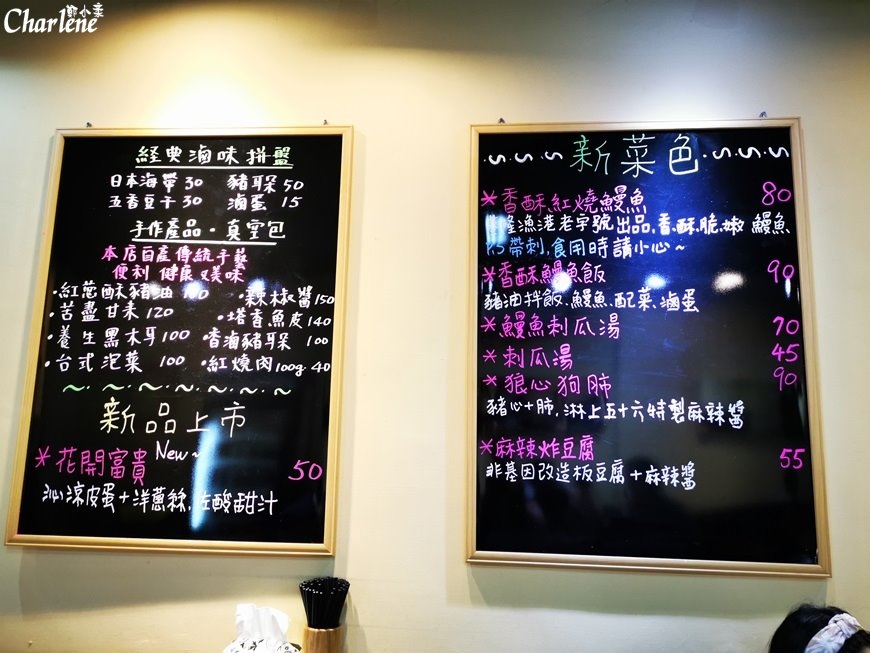 Charlene 鄭小柔
経典滷味拼盤
日本海帶30 豬耳朵50
五香豆干30 滷蛋15
手作產品・真空包
本店自產傳統手藝
便利 健康 又美味
・紅蔥酥豬油 ・辣椒醬150
・苦盡甘来120 ・塔香魚皮140
・養生黑木耳100 ・香滷豬耳朵100
・台式泡菜 100 ・紅燒肉100g 40
新品上市
＊花開富貴 New~ 50
沁涼皮蛋+洋蔥絲,佐酸甜汁
新菜色
＊香酥紅燒鰻魚 80
隆漁港老字號出品,香、酥、脆、嫩 鰻魚
帶刺,食用時請小心~
＊香酥鰻魚飯 90
豬油拌飯、鰻魚、配菜、滷蛋
＊鰻魚刺瓜湯 70
＊刺瓜湯 45
＊狼心狗肺 90
豬心+肺,淋上五十六特製麻辣醬
＊麻辣炸豆腐 55
非基因改造板豆腐+麻辣醬